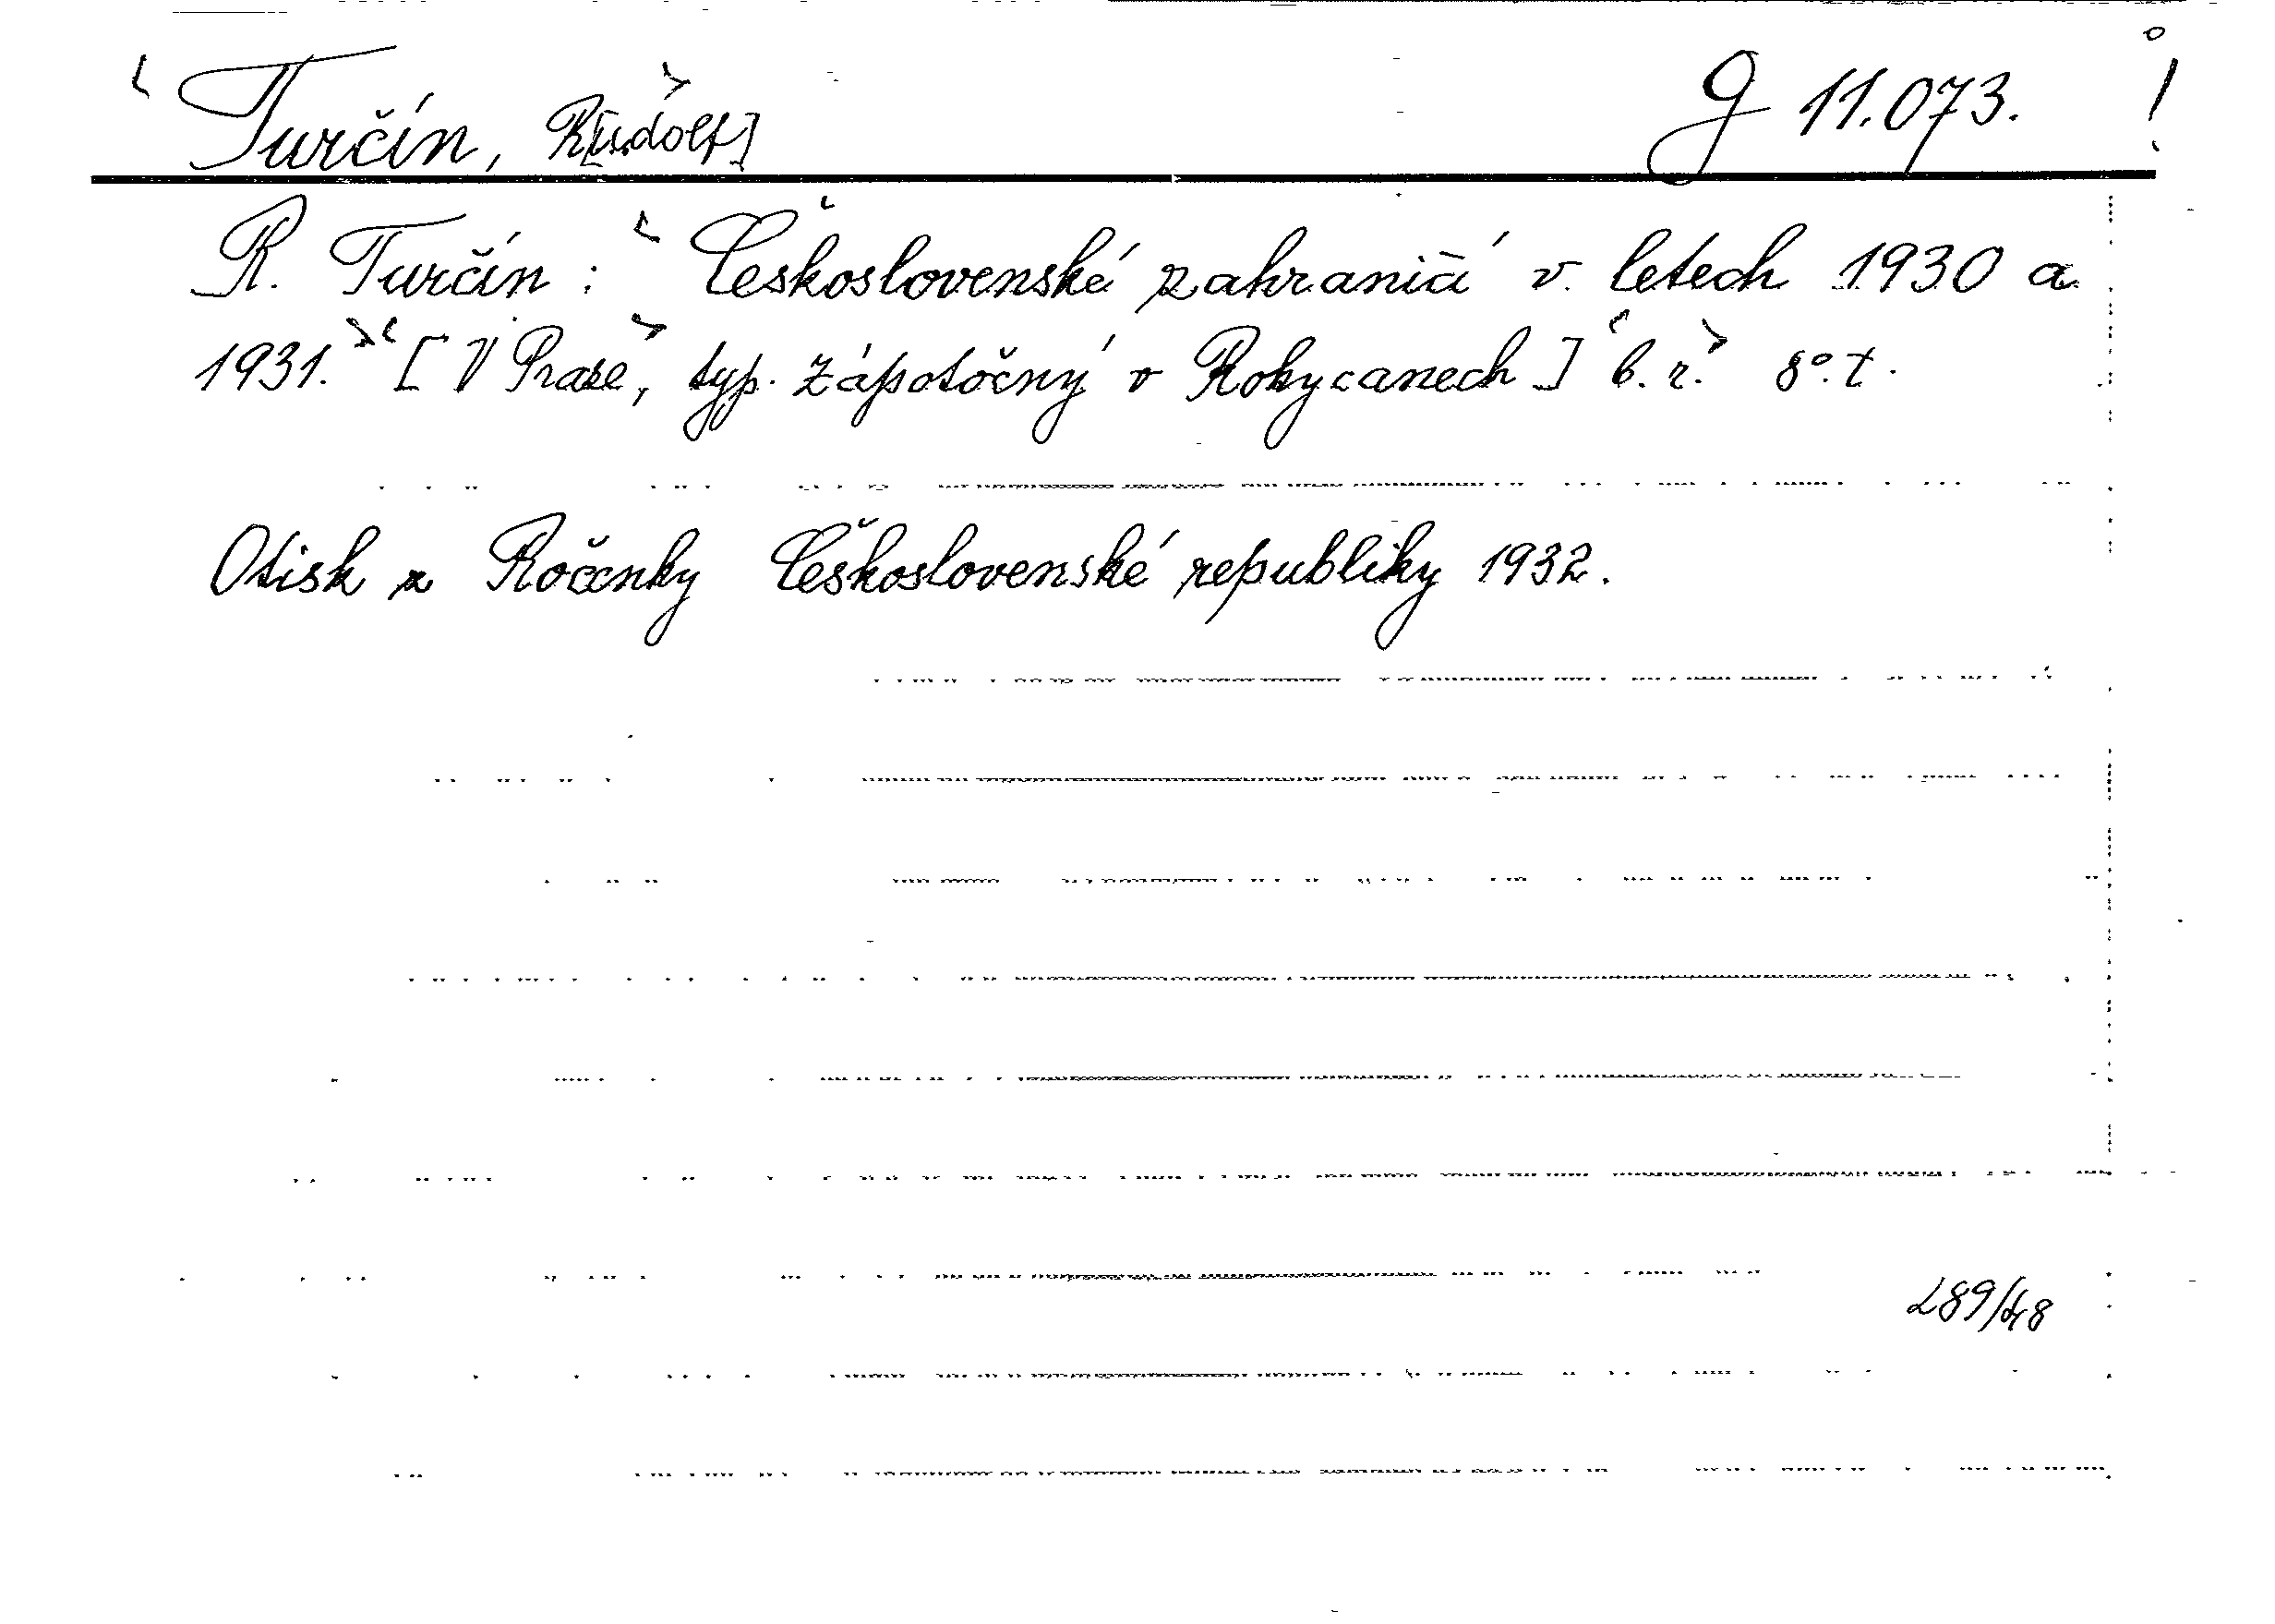 Turčín, R[udolf] g 11.073. !
R. Turčín : Československé zahraničí v letech 1930 a
1931. [V Praze, typ. Zápotočný v Rokycanech] b. r. 8°. t.
Otisk z Ročenky Československé republiky 1932.
289/48